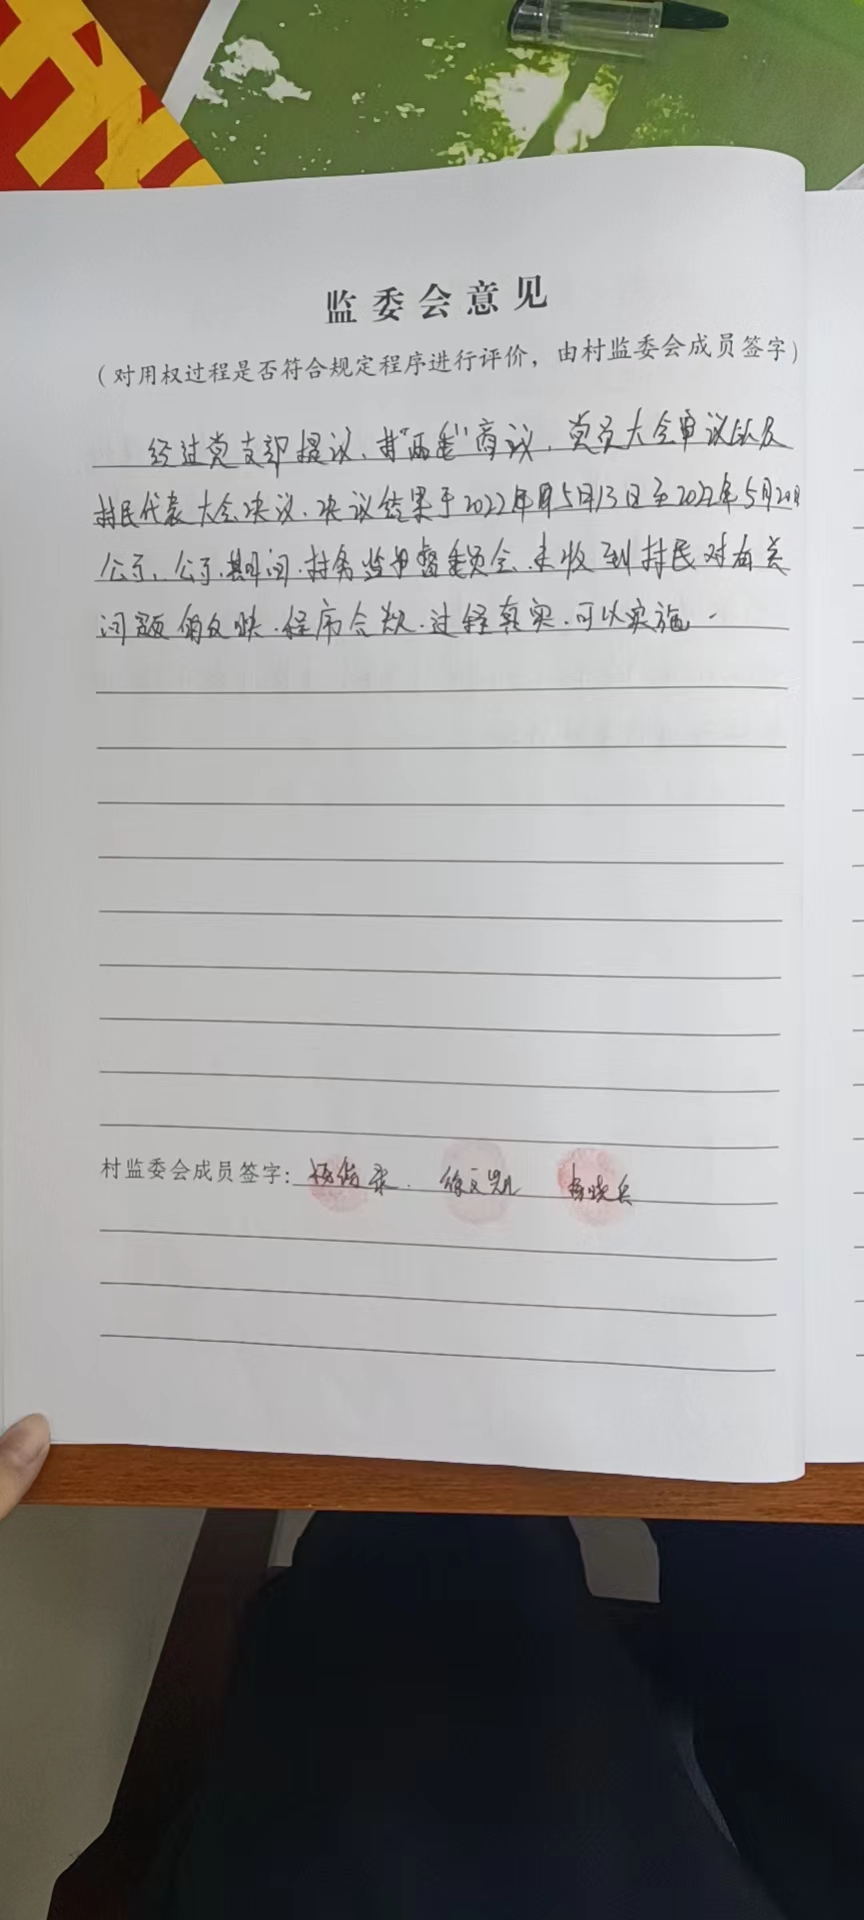 监委会意见
（对用权过程是否符合规定程序进行评价，由村监委会成员签字）
经过党支部提议、村"两委"商议、党员大会审议以及
村民代表大会决议、决议结果于2022年5月13日至2022年5月20日
公示、公示期间、村务监督委员会未收到村民对有关
问题的反映、程序合规、过程真实、可以实施.
村监委会成员签字： 徐文凯